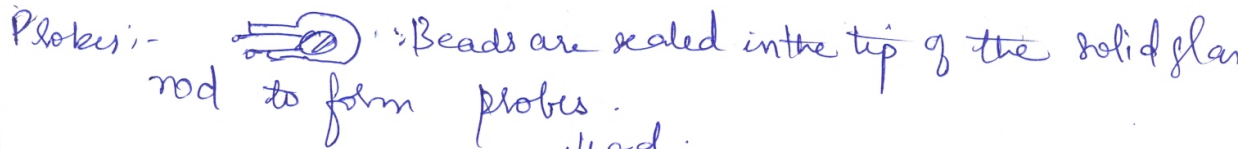 Probes:- :Beads are sealed in the tip of the solid glas
rod to form probes.